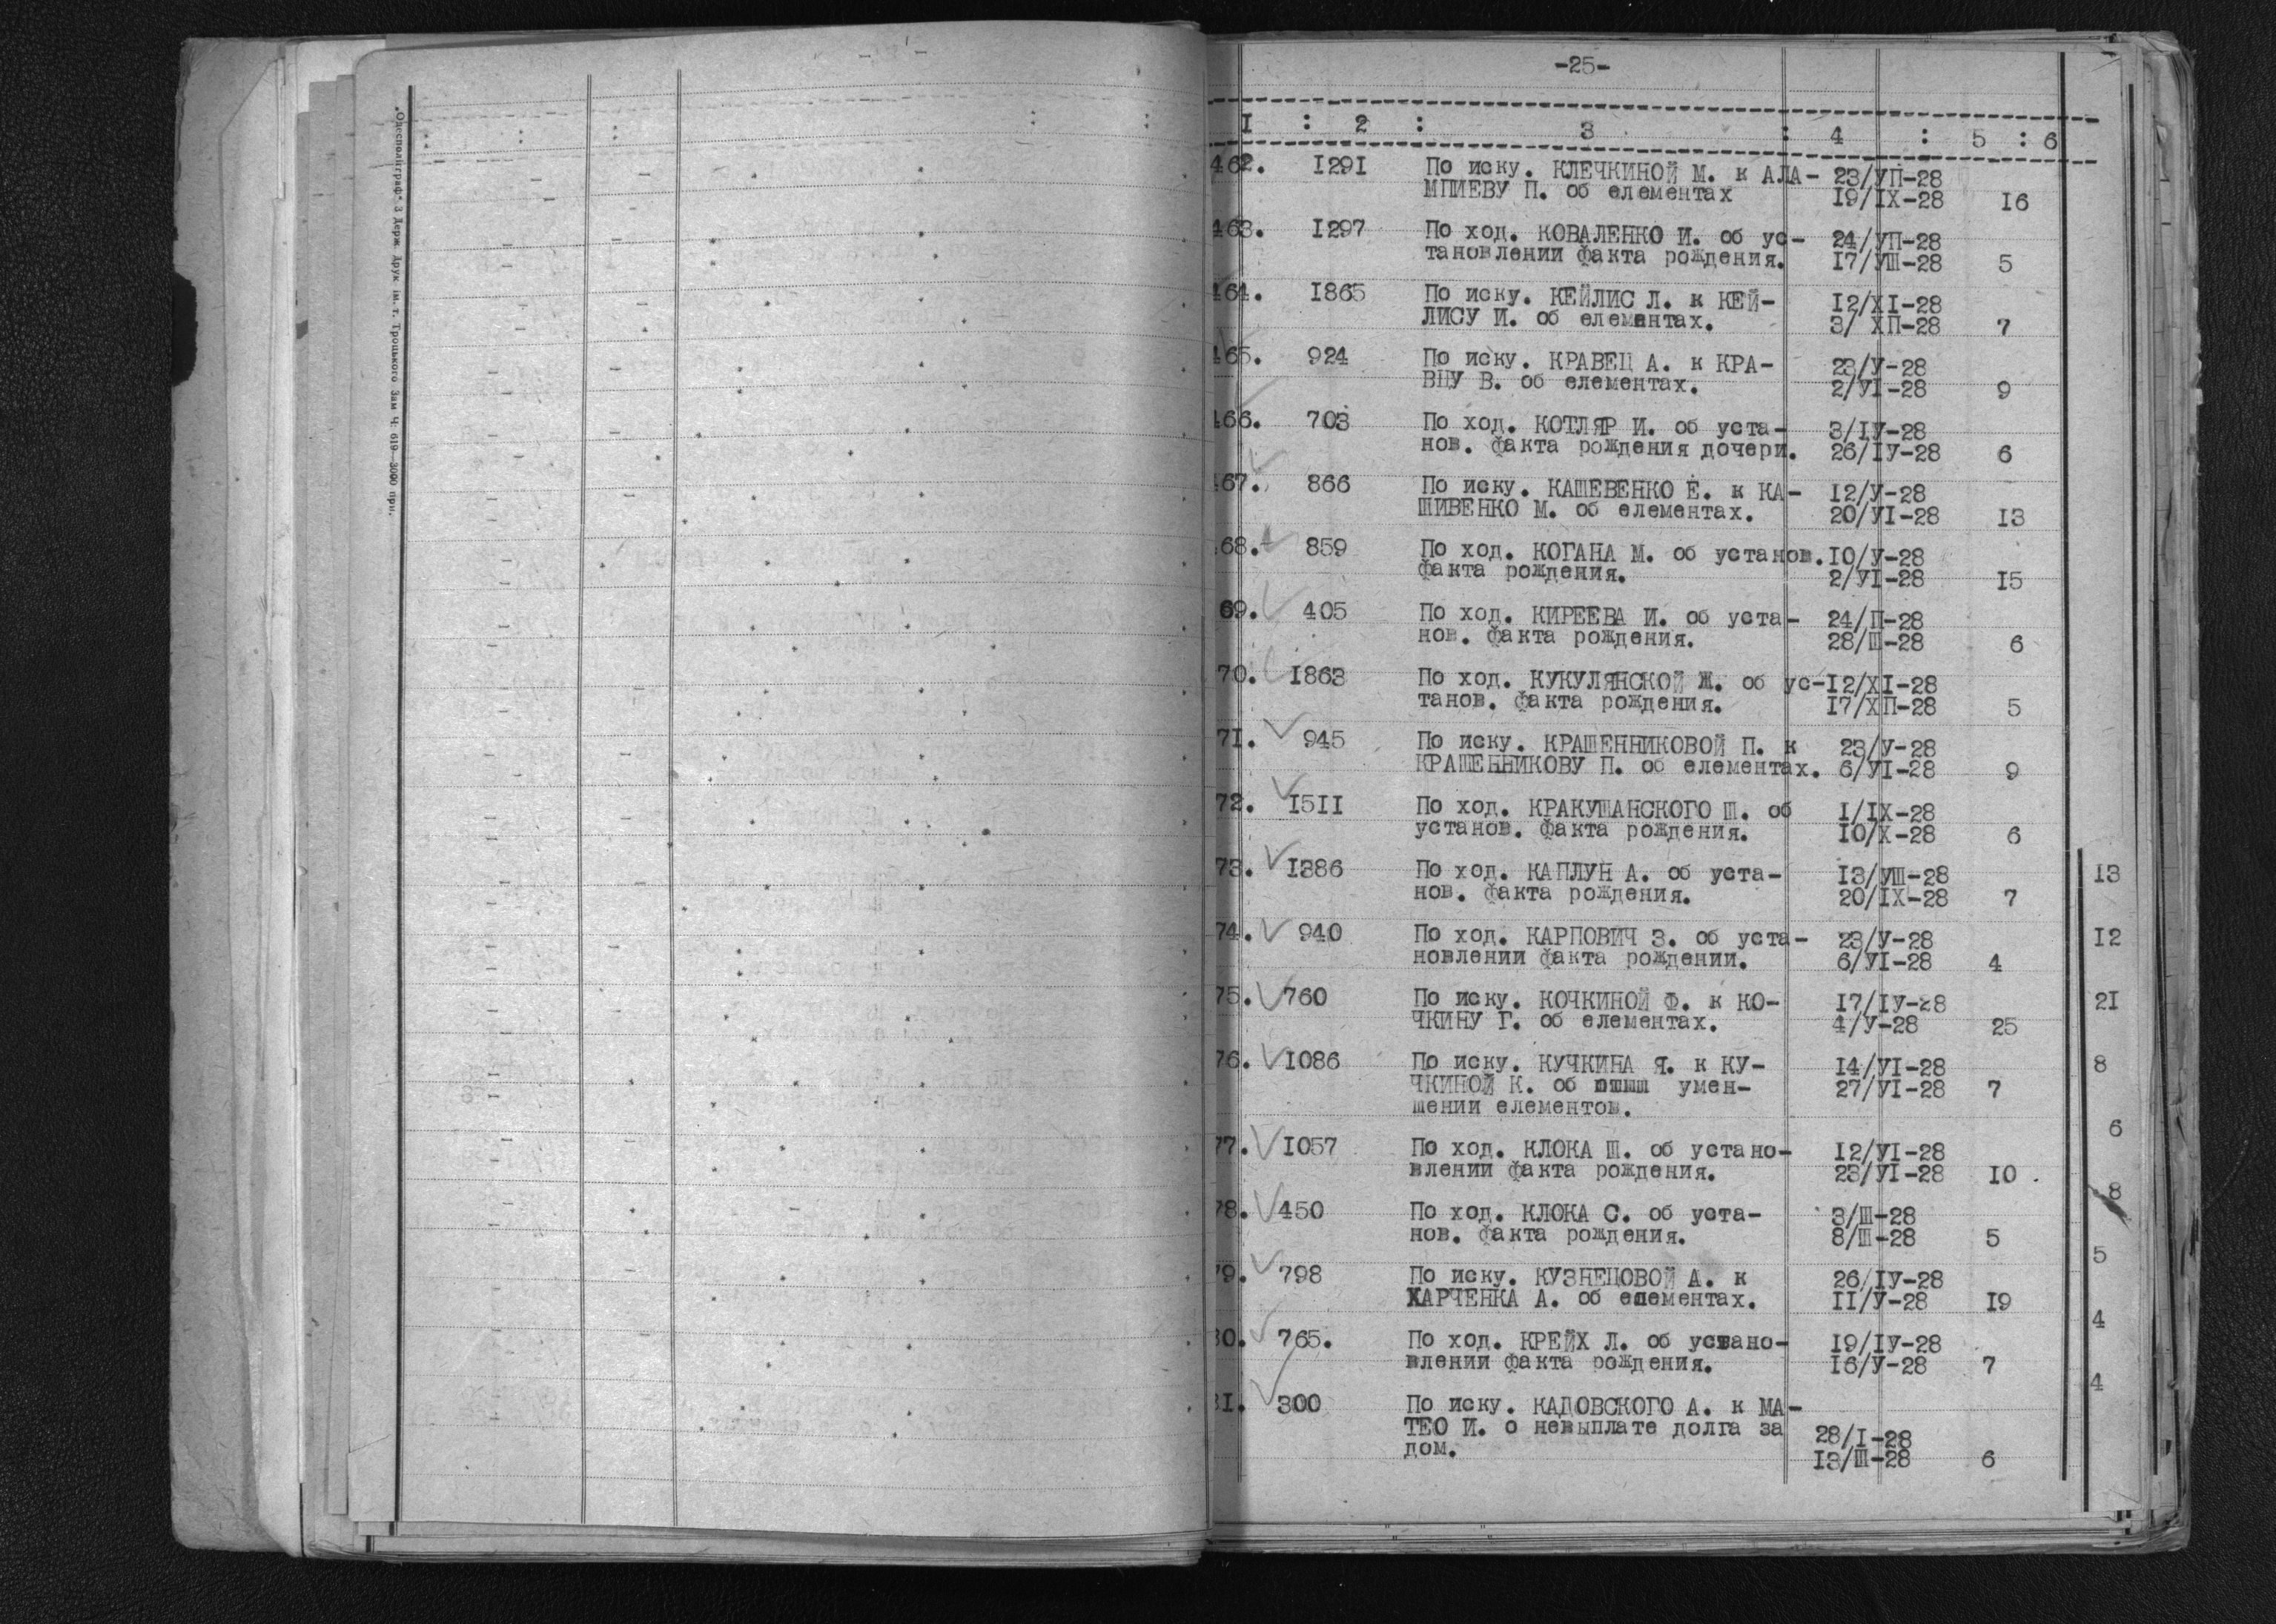 "Одесполіграф" 3 Держ. Друк ім. т. Троцького Зам Ч. 619—3000 прн.
-25-
I : 2 : 3 : 4 : 5 : 6
462. I29I По иску. КЛЕЧКИНОЙ М. к АЛА- 23/УП-28
МПИЕВУ П. об елементах I9/IX-28 I6
463. I297 По ход. КОВАЛЕНКО И. об ус- 24/УП-28
тановлении факта рождения. I7/УШ-28 5
464. I865 По иску. КЕЙЛИС Л. к КЕЙ- I2/XI-28
ЛИСУ И. об елементах. 3/ ХП-28 7
465. 924 По иску. КРАВЕЦ А. к КРА- 23/У-28
ВЦУ В. об елементах. 2/УI-28 9
466. 703 По ход. КОТЛЯР И. об уста- 3/IУ-28
нов. факта рождения дочери. 26/IУ-28 6
467. 866 По иску. КАШЕВЕНКО Е. к КА- I2/У-28
ШИВЕНКО М. об елементах. 20/УI-28 I3
68. 859 По ход. КОГАНА М. об установ. I0/У-28
факта рождения. 2/УI-28 I5
69. 405 По ход. КИРЕЕВА И. об уста- 24/П-28
нов. факта рождения. 28/Ш-28 6
70. I863 По ход. КУКУЛЯНСКОЙ Ж. об ус- I2/XI-28
танов. факта рождения. I7/ХП-28 5
7I. 945 По иску. КРАШЕННИКОВОЙ П. к 23/У-28
КРАШЕННИКОВУ П. об елементах. 6/УI-28 9
72. I5II По ход. КРАКУШАНСКОГО Ш. об I/IX-28
установ. факта рождения. I0/X-28 6
73. I386 По ход. КАПЛУН А. об уста- I3/УШ-28 I3
нов. факта рождения. 20/IX-28 7
74. 940 По ход. КАРПОВИЧ З. об уста- 23/У-28 I2
новлении факта рождении. 6/УI-28 4
75. 760 По иску. КОЧКИНОЙ Ф. к КО- I7/IУ-28 2I
ЧКИНУ Г. об елементах. 4/У-28 25
76. I086 По иску. КУЧКИНА Я. к КУ- I4/УI-28 8
ЧКИНОЙ К. об умен- 27/УI-28 7
шении елементов.
6
77. I057 По ход. КЛОКА Ш. об устано- I2/УI-28
влении факта рождения. 23/УI-28 I0
78. 450 По ход. КЛОКА С. об уста- 3/Ш-28 8
нов. факта рождения. 8/Ш-28 5
5
79. 798 По иску. КУЗНЕЦОВОЙ А. к 26/IУ-28
ХАРЧЕНКА А. об елементах. II/У-28 I9
4
80. 765. По ход. КРЕЙХ Л. об устано- I9/IУ-28
влении факта рождения. I6/У-28 7
4
8I. 300 По иску. КАДОВСКОГО А. к МА-
ТЕО И. о невыплате долга за 28/I-28
дом. I3/Ш-28 6